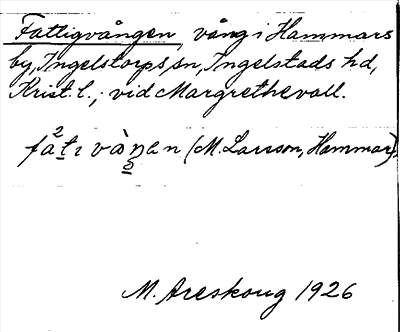 Fattigvången, vång i Hammars
by, Ingelstorps sn, Ingelstads hd,
Krist. l., vid Margrethevall.
(M. Larsson, Hammar).
M. Areskoug 1926